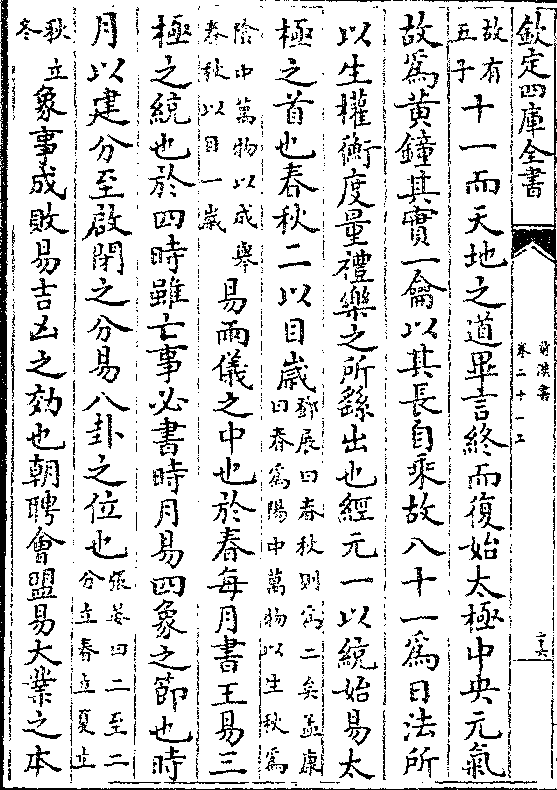 欽定四庫全書
前漢書
卷二十一上
故有五子十一而天地之道畢言終而復始太極中央元氣
故爲黃鐘其實一龠以其長自乘故八十一爲日法所
以生權衡度量禮樂之所繇出也經元一以統始易太
極之首也春秋二以目歲鄧展曰春秋則爲二矣孟康曰春爲陽中萬物以生秋爲
陰中萬物以成舉春秋以目一歲易兩儀之中也於春每月書王易三
極之統也於四時雖亡事必書時月易四象之節也時
月以建分至啟閉之分易八卦之位也張晏曰二至二分立春立夏立
秋立冬象事成敗易吉凶之効也朝聘會盟易大業之本